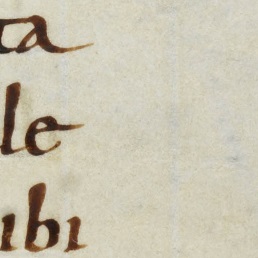 ta
le
ibi